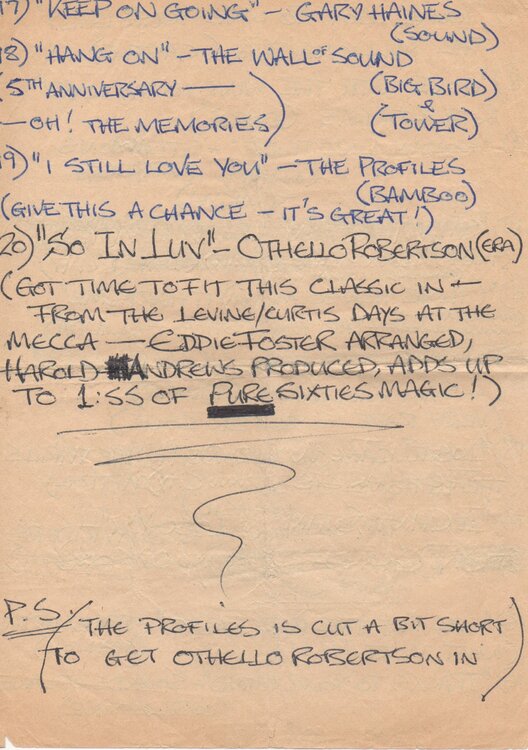 17) "KEEP ON GOING" - GARY HAINES
(SOUND)
18) "HANG ON" - THE WALL OF SOUND
(5TH ANNIVERSARY — (BIG BIRD)
&
— OH! THE MEMORIES) (TOWER)
19) "I STILL LOVE YOU" - THE PROFILES
(BAMBOO)
(GIVE THIS A CHANCE - IT'S GREAT!)
20) "SO IN LUV" - OTHELLO ROBERTSON (ERA)
(GOT TIME TO FIT THIS CLASSIC IN -
FROM THE LEVINE/CURTIS DAYS AT THE
MECCA — EDDIE FOSTER ARRANGED,
HAROLD ANDREWS PRODUCED, ADDS UP
TO 1:55 OF PURE SIXTIES MAGIC!)
P.S. (THE PROFILES IS CUT A BIT SHORT
TO GET OTHELLO ROBERTSON IN)